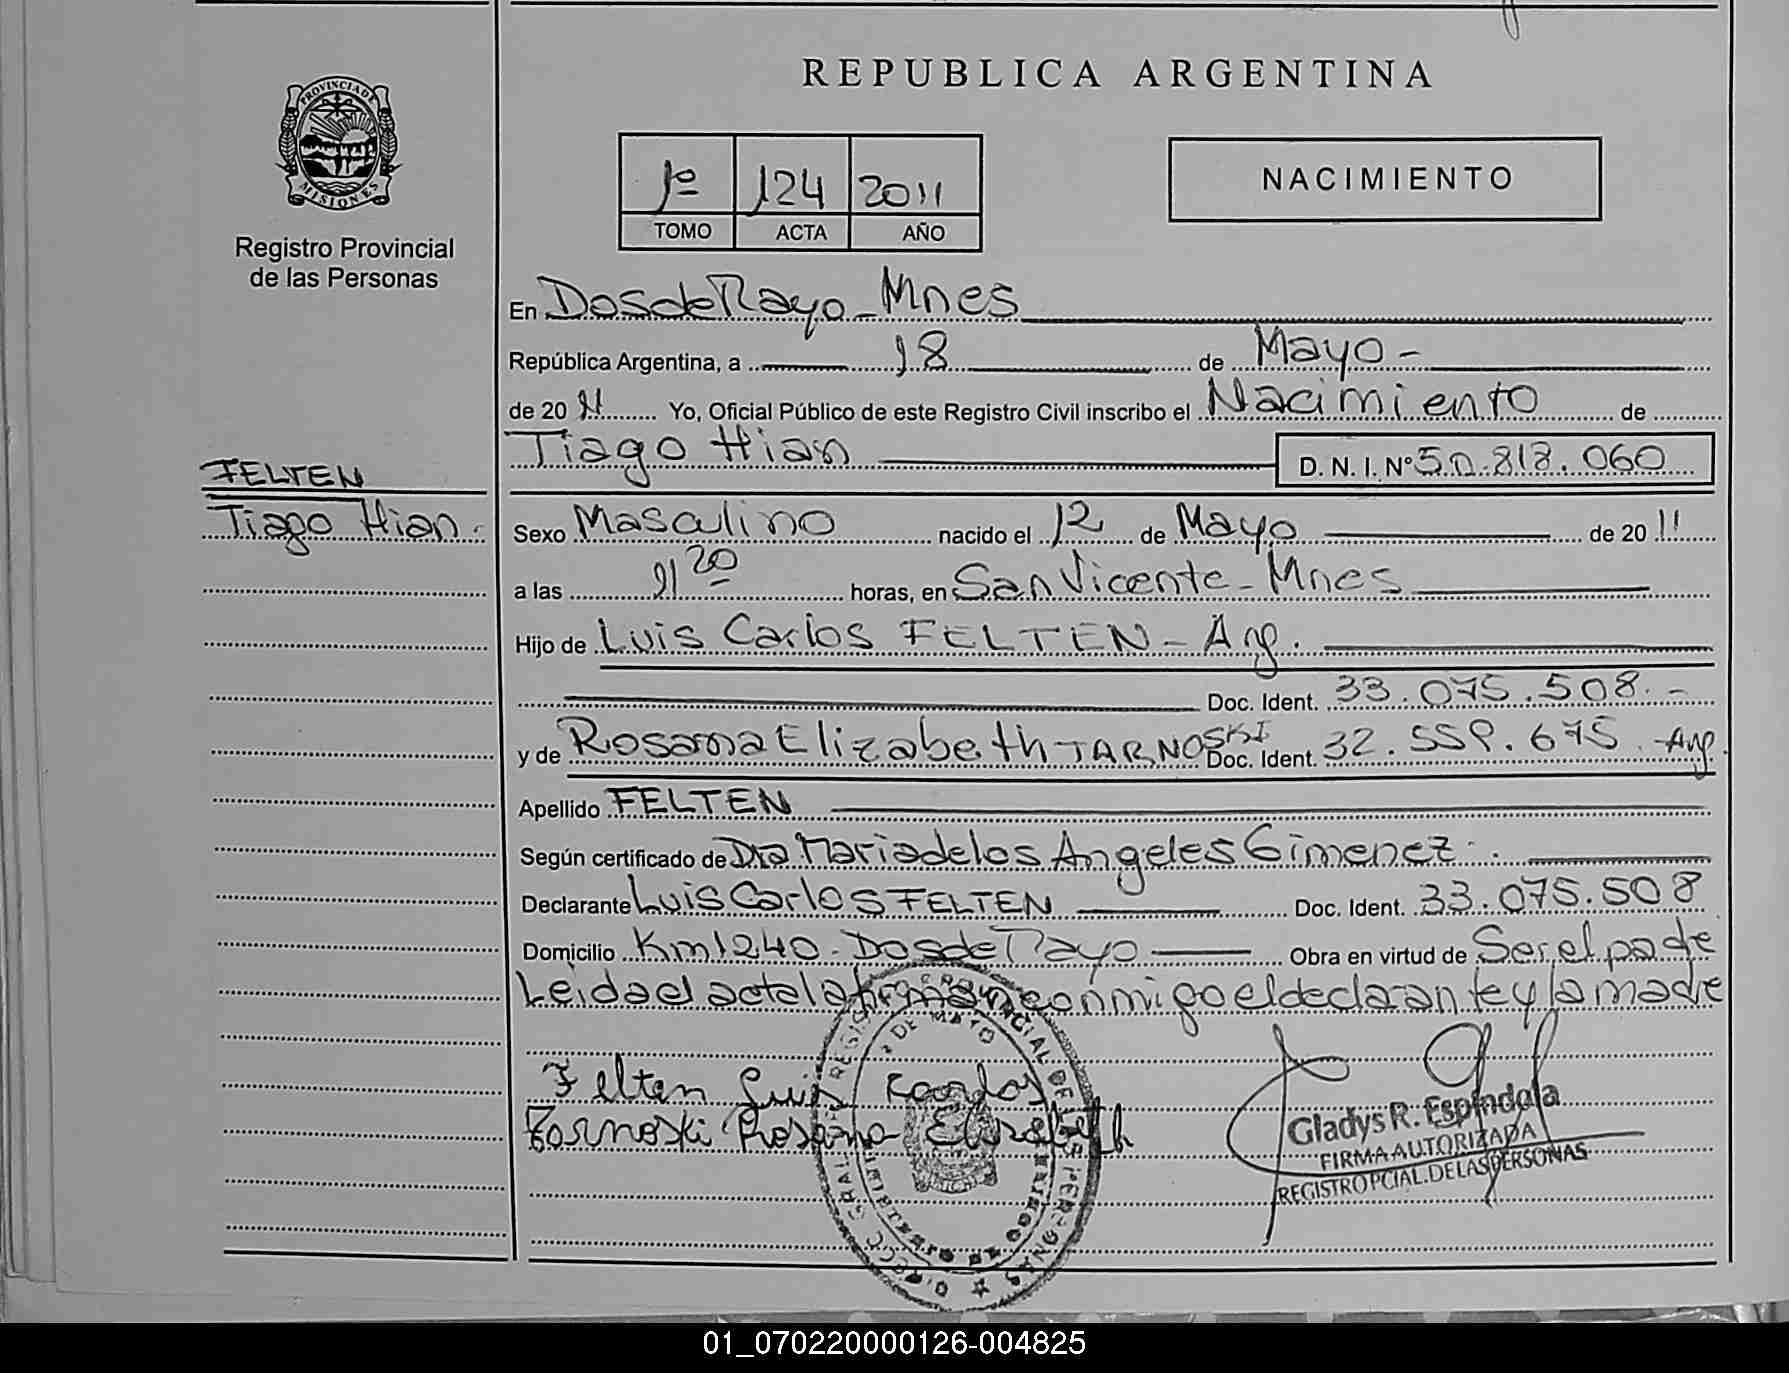 REPUBLICA ARGENTINA
PROVINCIA DE
MISIONES
Registro Provincial
de las Personas
1º 124 2011
TOMO ACTA AÑO
NACIMIENTO
En Dos de Mayo - Mnes
República Argentina, a 18 de Mayo -
de 20 11 Yo, Oficial Público de este Registro Civil inscribo el Nacimiento de
Tiago Hian D. N. I. Nº 50.818.060
FELTEN
Tiago Hian.
Sexo Masculino nacido el 12 de Mayo de 20 11
a las 11 20 horas, en San Vicente - Mnes
Hijo de Luis Carlos FELTEN - Arg.
Doc. Ident. 33.075.508.-
y de Rosana Elizabeth TARNOSKI Doc. Ident. 32.559.675. Arg.
Apellido FELTEN
Según certificado de Dra Maria de los Angeles Gimenez.
Declarante Luis Carlos FELTEN Doc. Ident. 33.075.508
Domicilio Km 1240 - Dos de Mayo Obra en virtud de Ser el padre
Leida el acta la firman conmigo el declarante y la madre
Felten Luis Carlos
Tarnoski Rosana Elizabeth
Gladys R. Espindola
FIRMA AUTORIZADA
REGISTRO PCIAL. DE LAS PERSONAS
01_070220000126-004825